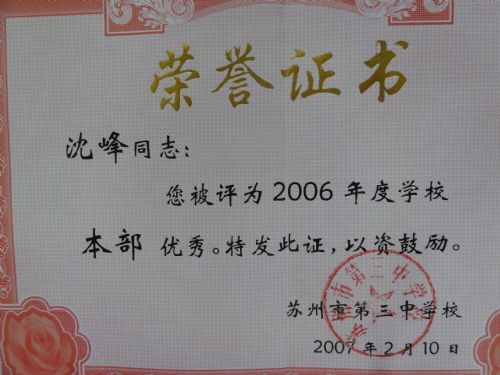 荣誉证书
沈峰同志：
您被评为2006年度学校
本部 优秀。特发此证，以资鼓励。
苏州市第三中学校
2007年2月10日